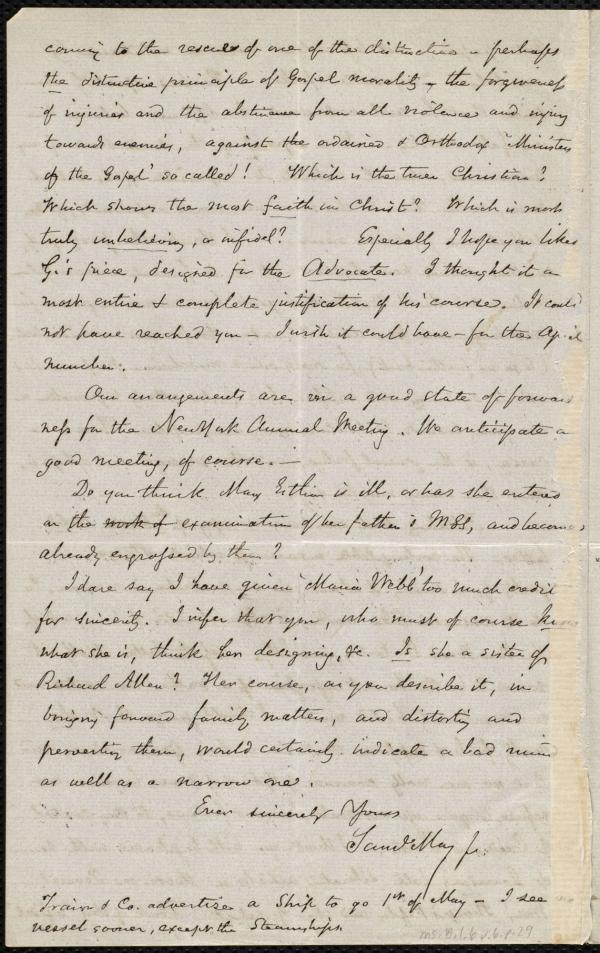 coming to the rescue of one of the distinctive – perhaps
the distinctive principle of Gospel morality, the forgiveness
of injuries and the abstinence from all violence and injury
towards enemies, against the ordained & Orthodox "Ministers
of the Gospel" so called! Which is the truer Christian?
Which shows the most faith in Christ? Which is most
truly unbelieving, or infidel? Especially I hope you liked
G's piece, designed for the Advocate. I thought it a
most entire & complete justification of his course. It could
not have reached you – I wish it could have – for the April
number.
Our arrangements are in a good state of forward
ness for the New York Annual Meeting. We anticipate a
good meeting, of course. –
Do you think Mary Estlin is ill, or has she entered
on the work of examination of her father's MSS, and become
already engrossed by them?
I dare say I have given Maria Webb too much credit
for sincerity. I infer that you, who must of course know
what she is, think her designing, &c. Is she a sister of
Richard Allen? Her course, as you describe it, in
bringing forward family matters, and distorting and
perverting them, would certainly indicate a bad mind
as well as a narrow one.
Ever sincerely Yours
Saml May Jr.
Train & Co. advertize a Ship to go 1st of May – I see no
vessel sooner, except the Steamships.
Ms. B.1.6 v.6 p.29